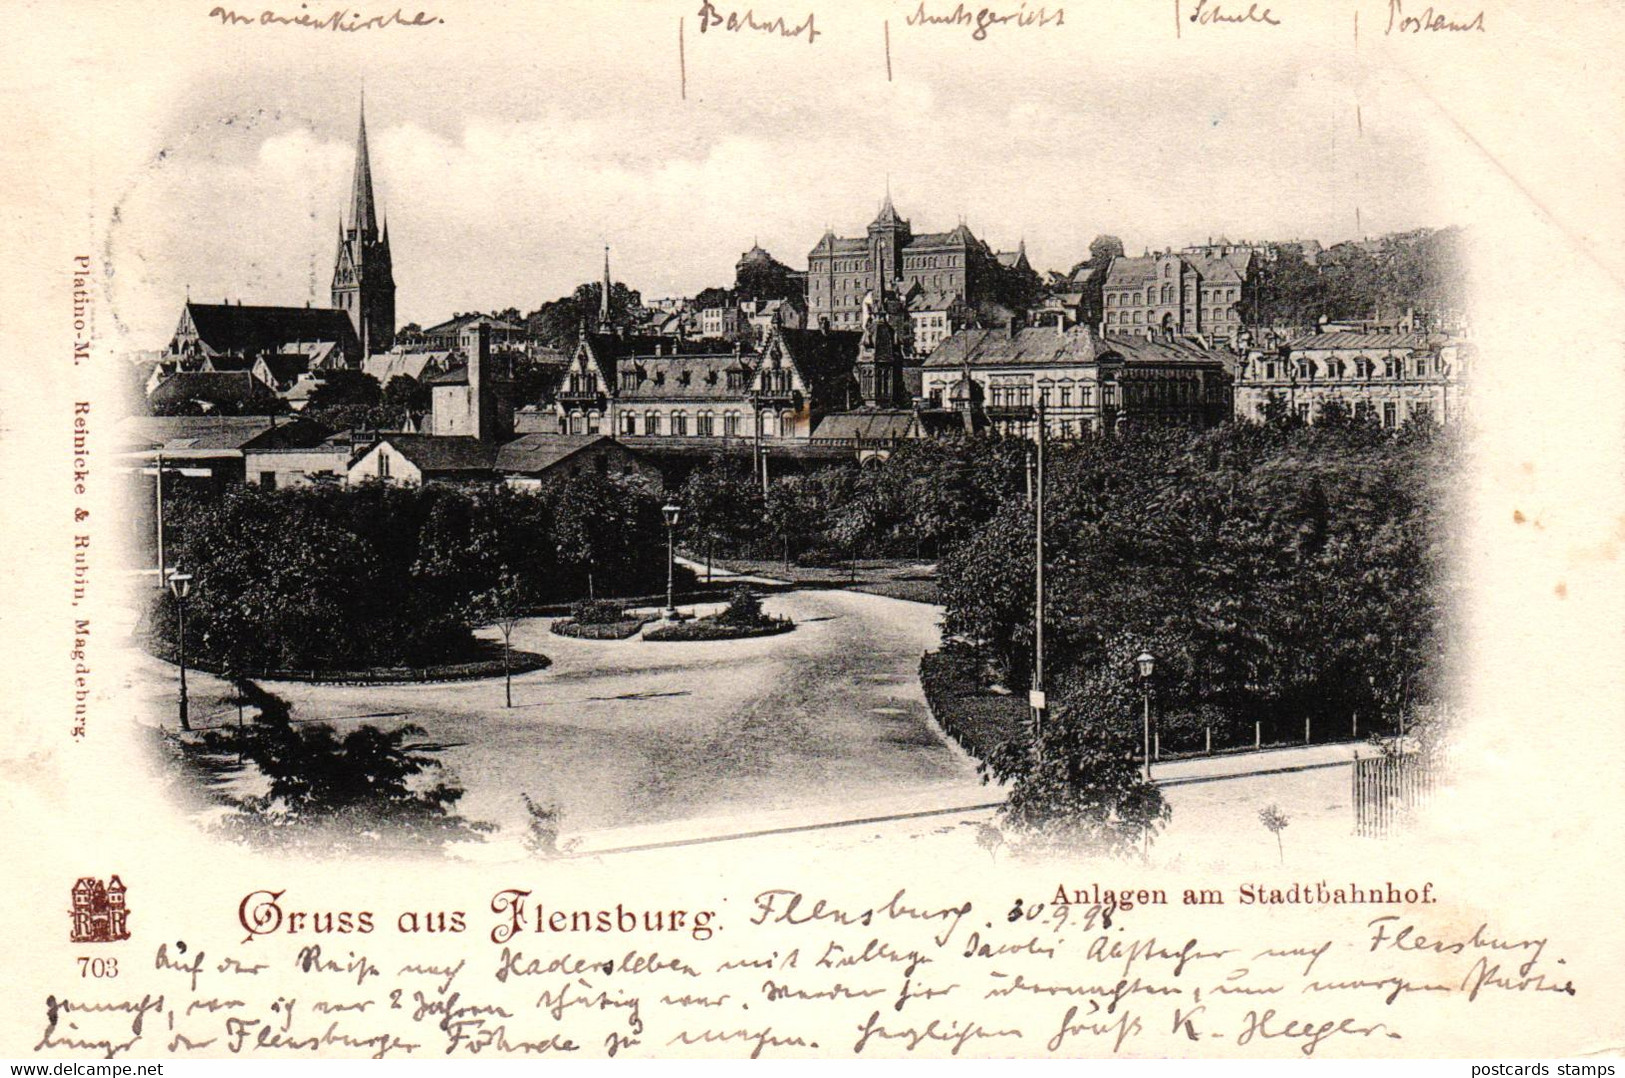 Marienkirche. Bahnhof Amtsgericht Schule Postamt
Platino-M. Reinicke & Rubin, Magdeburg.
Anlagen am Stadtbahnhof.
Gruss aus Flensburg. Flensburg, 30.9.98.
R R
703
Auf der Reise nach Hadersleben mit Kollege Jacobi Abstecher nach Flensburg
gemacht, wo ich vor 2 Jahren thätig war. Werden hier übernachten, um morgen Partie
längs der Flensburger Föhrde zu machen. Herzlichen Gruß K. Heeger.
delcampe.net
postcards stamps